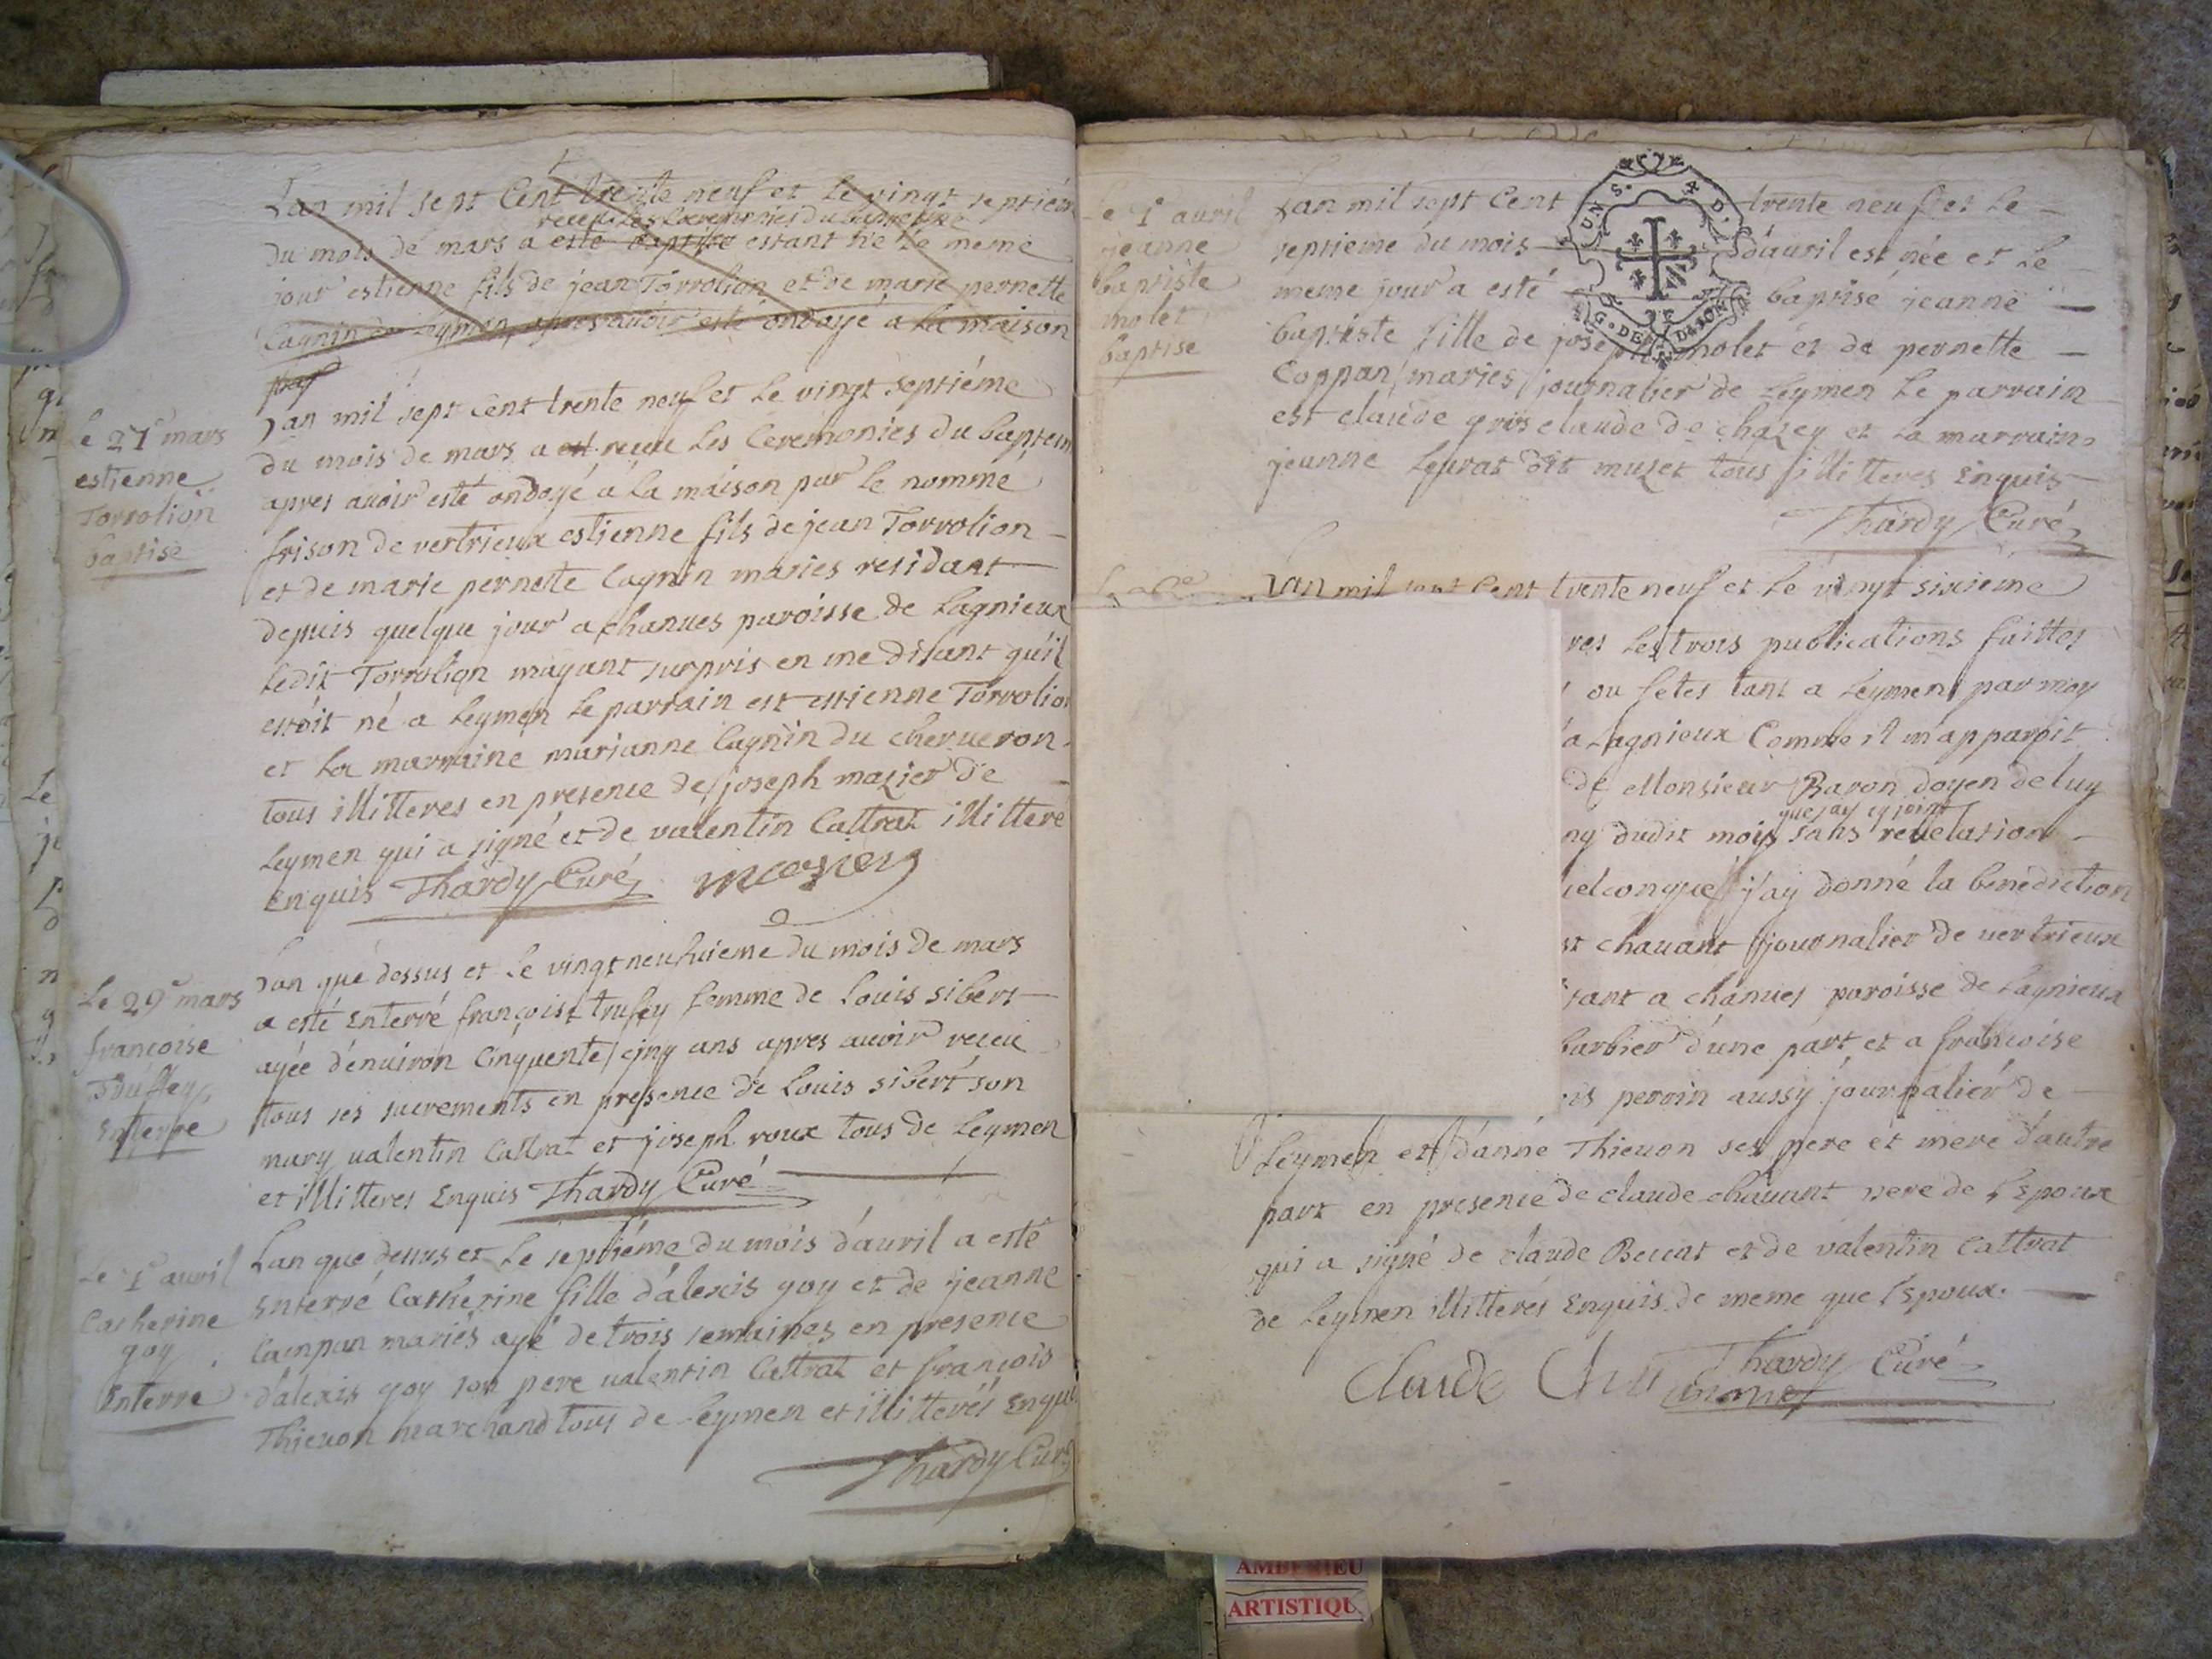 Lan mil sept Cent trente neuf et le vingt septiem
receu les Ceremonies du bapteme
du mois de mars a esté baptise estant né le meme
jour estienne fils de jean Torrolion et de marie pernette
Cagnin de Leymen apres avoir esté ondoyé a la maison
par
Le 27e mars
estienne
Torrolion
baptise
Lan mil sept cent trente neuf et le vingt septiéme
du mois de mars a est receu les Ceremonies du baptem
apres avoir esté ondoyé a la maison par le nomme
frison de vertrieux estienne fils de jean Torrolion
et de marie pernette Cagnin maries residant
depuis quelque jour a chanves paroisse de Lagnieux
ledit Torrolion mayant surpris en me disant quil
estoit né a Leymen le parrain est estienne Torrolion
et la marraine marianne Cagnin du cherveron
tous illitteres en presence de joseph mazier de
Leymen qui a signé et de valentin Cattrat illittere
Enquis Thardy Curé mazier
Le 29e mars
françoise
Truffey
Enterre
Lan que dessus et le vingt neufvieme du mois de mars
a esté Enterré françoise trufey femme de Louis sibert
agée d'environ Cinquente cinq ans apres avoir receu
tous ses sacrements en presence de Louis sibert son
mary valentin Cattrat et joseph roux tous de Leymen
et illitteres Enquis Thardy Curé
Le 7e avril
Catherine
goy
Enterre
Lan que dessus et le septiéme du mois d'avril a esté
Enterré Catherine fille d'alexis goy et de jeanne
Campan mariés agé de trois semaines en presence
d'alexis goy son pere valentin Cattrat et françois
Thievon marchand tous de Leymen et illitterés Enqui
Thardy Curé
Le 7e avril
jeanne
baptiste
molet
baptise
Lan mil sept Cent trente neuf et le
septieme du mois d'avril est née et le
meme jour a esté baptise jeanne
baptiste fille de joseph molet et de pernette
Coppan maries journalier de Leymen le parrain
est claude gros claude de chazey et la marraine
jeanne Leurat dit muzet tous illitteres Enquis
Thardy Curé
GEN. DE DIJON
Lan mil sept Cent trente neuf et le vingt sixieme
res les trois publications faittes
ou fetes tant a Leymen par moy
a Lagnieux Comme il m'apparoit
de Monsieur Baron doyen de luy
que jay cy joint
ny dudit mois sans revelation
uelconque j'ay donné la benediction
st chavant journalier de vertrieux
sant a chanves paroisse de Lagnieux
barbier d'une part et a francoise
is peroin aussy journalier de
Leymen et d'anne Thievon ses pere et mere d'autre
part en presence de claude chavant pere de l'Epoux
qui a signé de claude Beccat et de valentin Cattrat
de Leymen illitterés Enquis de meme que l'Epoux.
Claude Thardy Curé
AMBERIEU
ARTISTIQU